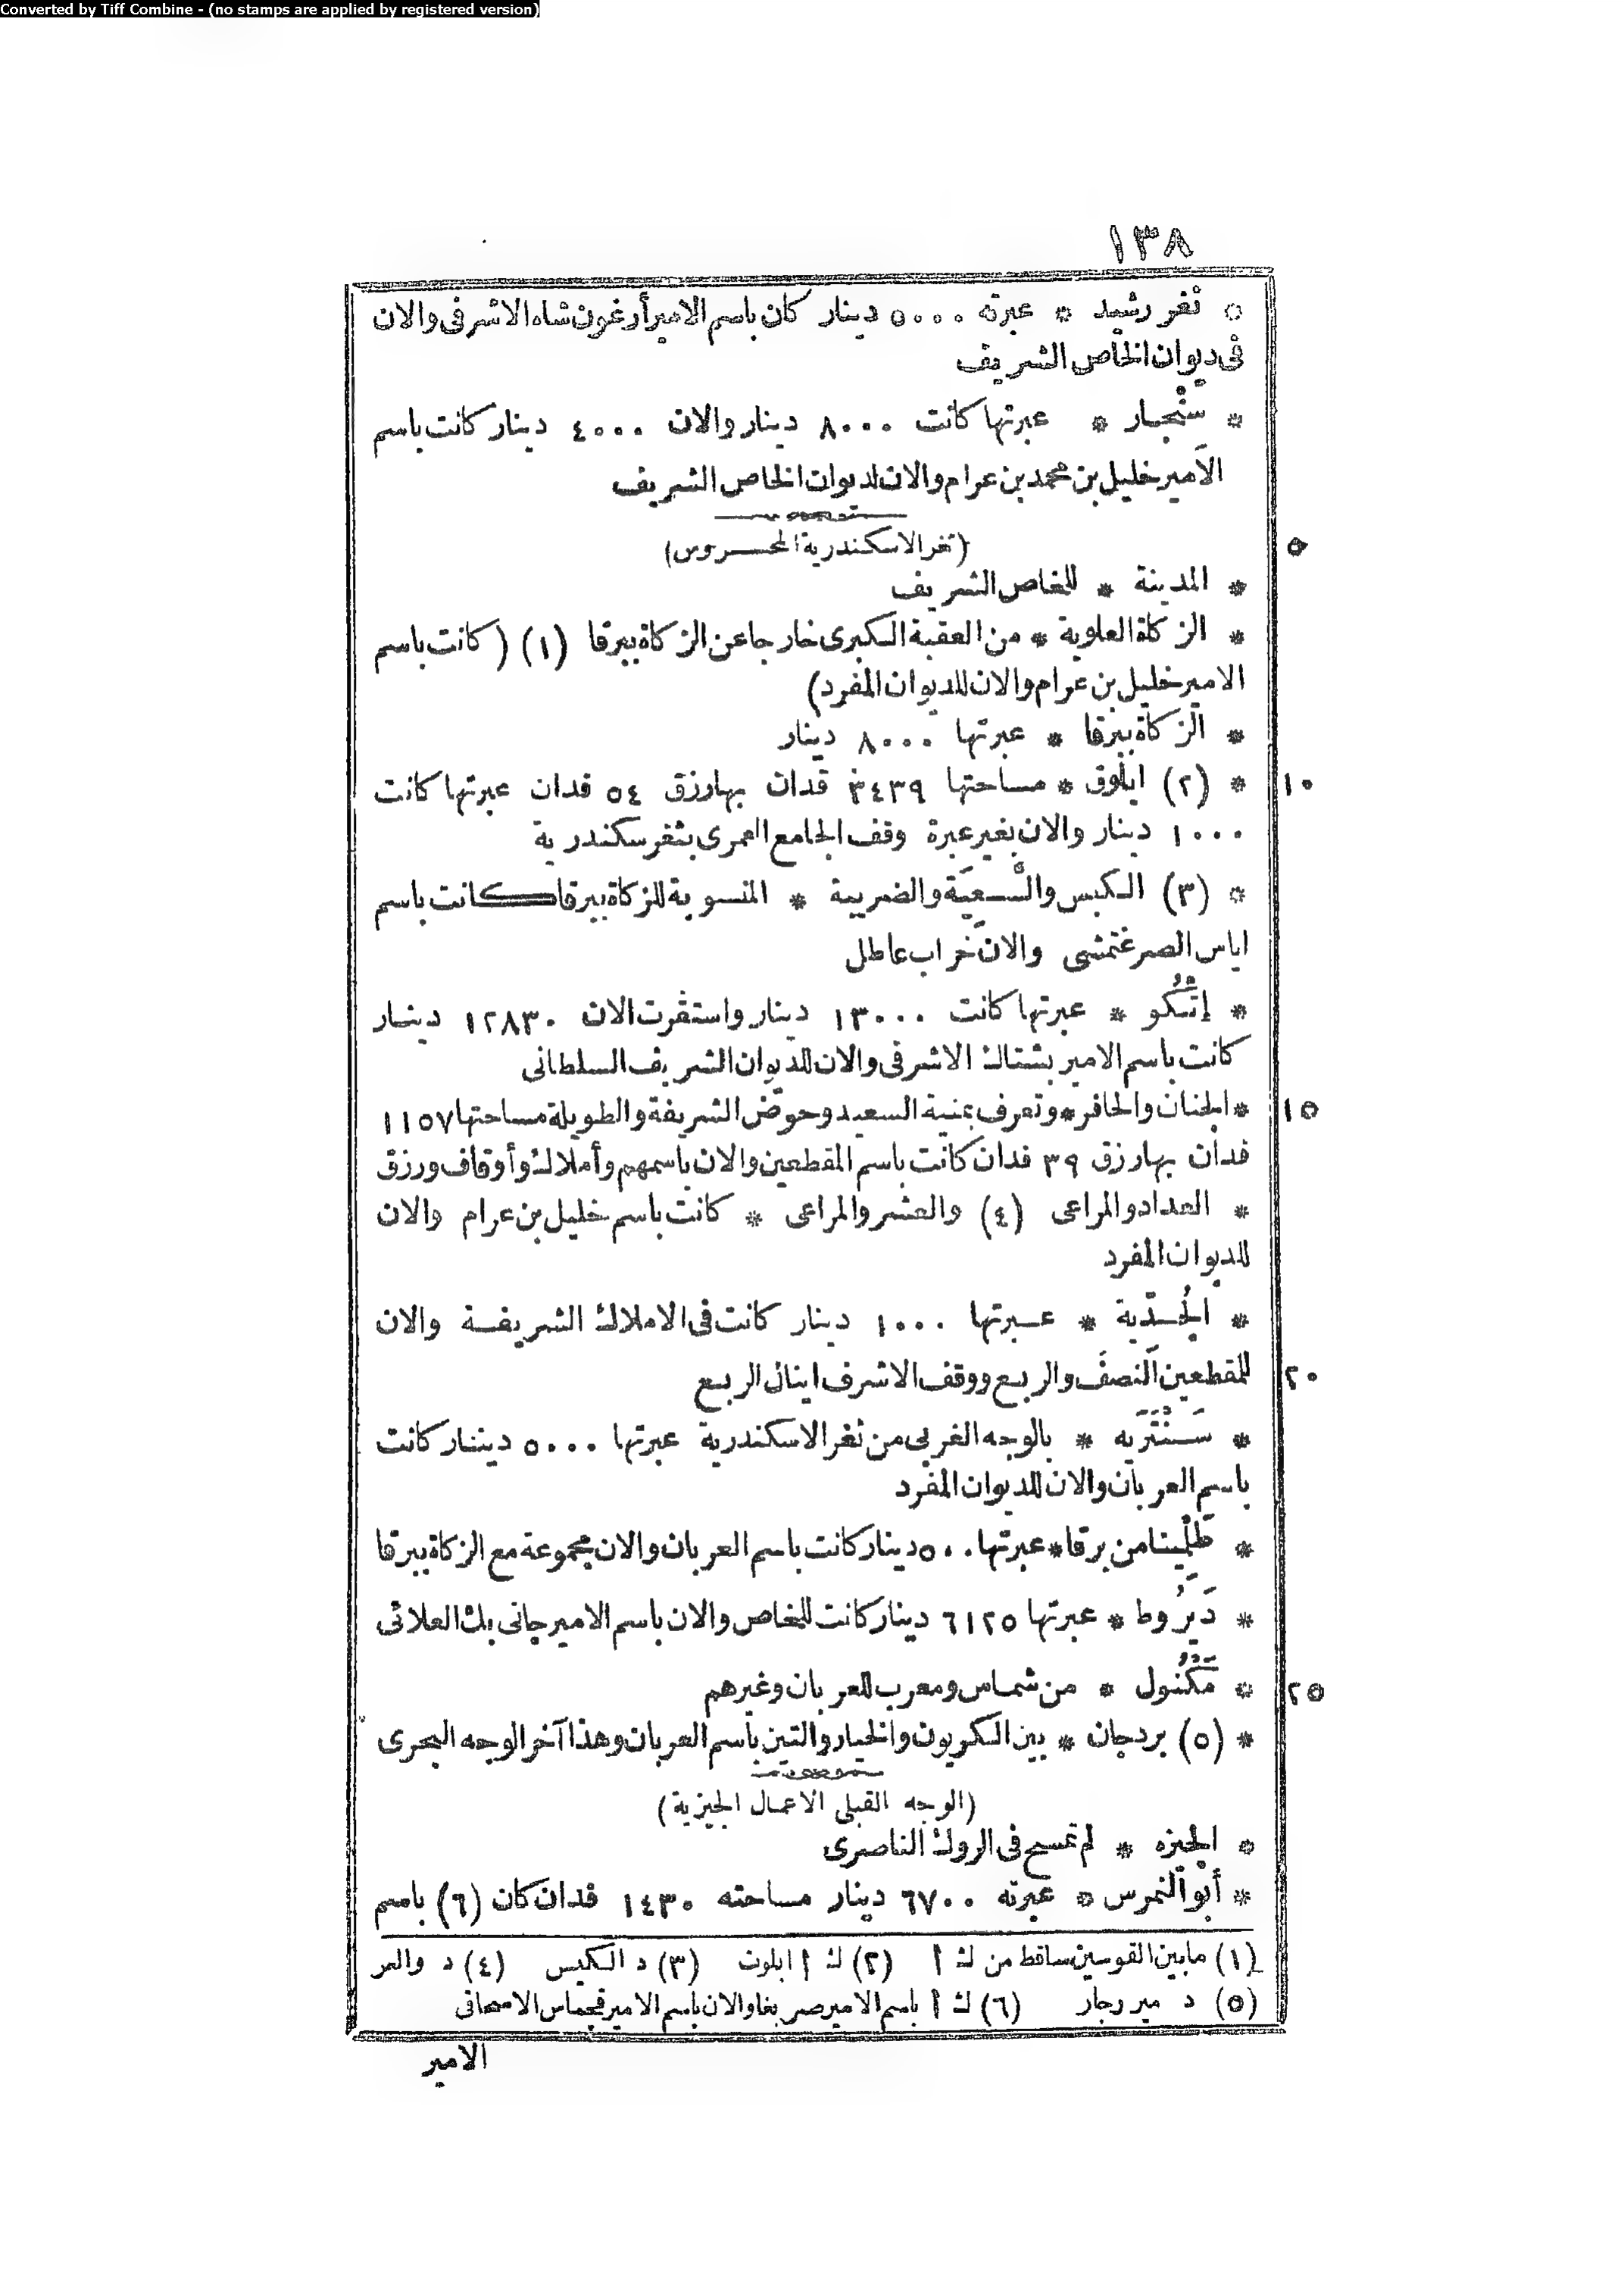 Converted by Tiff Combine - (no stamps are applied by registered version)
١٣٨
* ثغر رشيد * عبرته ٥٠٠٠ دينار كان باسم الامير أرغون شاه الاشرفى والان
فى ديوان الخاص الشريف
* سَنْجار * عبرتها كانت ٨٠٠٠ دينار والان ٤٠٠٠ دينار كانت باسم
الامير خليل بن محمد بن عرام والان لديوان الخاص الشريف
٥
(ثغر الاسكندرية المحروس)
* المدينة * للخاص الشريف
* الزكاة العلوية * من العقبة الكبرى خارجا عن الزكاة ببرقا (١) (كانت باسم
الامير خليل بن عرام والان للديوان المفرد)
* الزكاة ببرقا * عبرتها ٨٠٠٠ دينار
١٠
* (٢) ابلوق * مساحتها ٣٤٣٩ فدان بها رزق ٥٤ فدان عبرتها كانت
١٠٠٠ دينار والان بغير عبرة وقف الجامع العمرى بثغر سكندرية
* (٣) الكبس والسعية والضريبة * المنسوبة للزكاة ببرقا كانت باسم
اياس الصرغتمشى والان خراب عاطل
* إتْكُو * عبرتها كانت ١٣٠٠٠ دينار واستقرت الان ١٢٨٣٠ دينار
كانت باسم الامير بشتاك الاشرفى والان للديوان الشريف السلطانى
١٥
* الجنان والحافر * وتعرف بمنية السعيد وحوض الشريفة والطويلة مساحتها ١١٥٧
فدان بها رزق ٣٩ فدان كانت باسم المقطعين والان باسمهم وأملاك وأوقاف ورزق
* العداد والمراعى (٤) والعشر والمراعى * كانت باسم خليل بن عرام والان
للديوان المفرد
* الجُدّية * عبرتها ١٠٠٠ دينار كانت فى الاملاك الشريفة والان
٢٠
للمقطعين النصف والربع ووقف الاشرف اينال الربع
* سَنْتَرَيه * بالوجه الغربى من ثغر الاسكندرية عبرتها ٥٠٠٠ دينار كانت
باسم العربان والان للديوان المفرد
* طلميثا من برقا * عبرتها ٥٠٠ دينار كانت باسم العربان والان مجموعة مع الزكاة ببرقا
* دَيرُوط * عبرتها ٦١٢٥ دينار كانت للخاص والان باسم الامير جانى بك العلائى
٢٥
* مَكْنُول * من شماس ومعرب للعربان وغيرهم
* (٥) بردجان * بين الكريون والخيار والتين باسم العربان وهذا آخر الوجه البحرى
(الوجه القبلى الاعمال الجيزية)
* الجيزه * لم تمسح فى الروك الناصرى
* أبو النمرس * عبرته ٦٧٠٠ دينار مساحته ١٤٣٠ فدان كان (٦) باسم
(١) ما بين القوسين ساقط من ك أ (٢) ك أ ابلوث (٣) د الكيس (٤) د والعر
(٥) د مير رجار (٦) ك أ باسم الامير صر بغا والان باسم الامير قجماس الاسحاقى
الامير